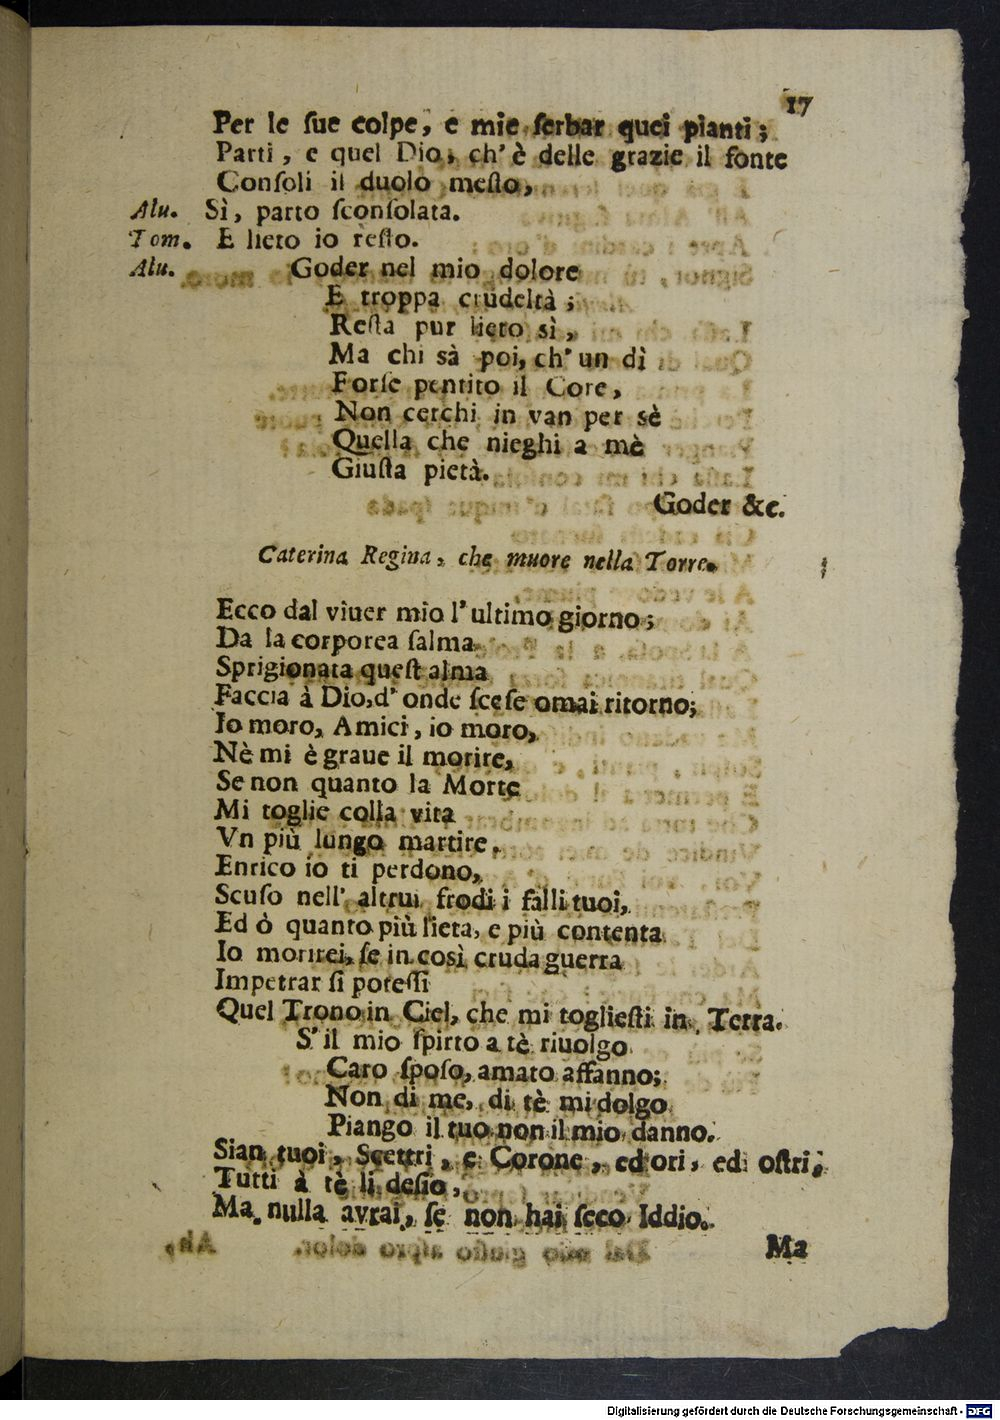 17
Per le ſue colpe, e mie ſerbar quei pianti;
Parti, e quel Dio, ch' è delle grazie il fonte
Conſoli il duolo meſto,
Alu. Sì, parto ſconſolata.
Tom. E lieto io reſto.
Alu. Goder nel mio dolore
E troppa crudeltà;
Reſta pur lieto sì,
Ma chi sà poi, ch' un dì
Forſe pentito il Core,
Non cerchi in van per sè
Quella che nieghi a mè
Giuſta pietà.
Goder &c.
Caterina Regina, che muore nella Torre.
Ecco dal viuer mio l' ultimo giorno;
Da la corporea ſalma
Sprigionata queſt alma
Faccia à Dio, d' onde ſceſe omai ritorno;
Io moro, Amici, io moro,
Nè mi è graue il morire,
Se non quanto la Morte
Mi toglie colla vita
Vn più lungo martire.
Enrico io ti perdono,
Scuſo nell' altrui frodi i falli tuoi,
Ed ò quanto più lieta, e più contenta
Io morirei, ſe in così cruda guerra
Impetrar ſi poteſſi
Quel Trono in Ciel, che mi toglieſti in Terra.
S' il mio ſpirto a tè riuolgo
Caro ſpoſo, amato affanno;
Non di me, di tè mi dolgo
Piango il tuo non il mio danno.
Sian tuoi, Scettri, e Corone, ed ori, ed oſtri;
Tutti à tè li deſio,
Ma nulla avrai, ſe non hai ſeco Iddio.
Ma
Digitalisierung gefördert durch die Deutsche Forschungsgemeinschaft - DFG